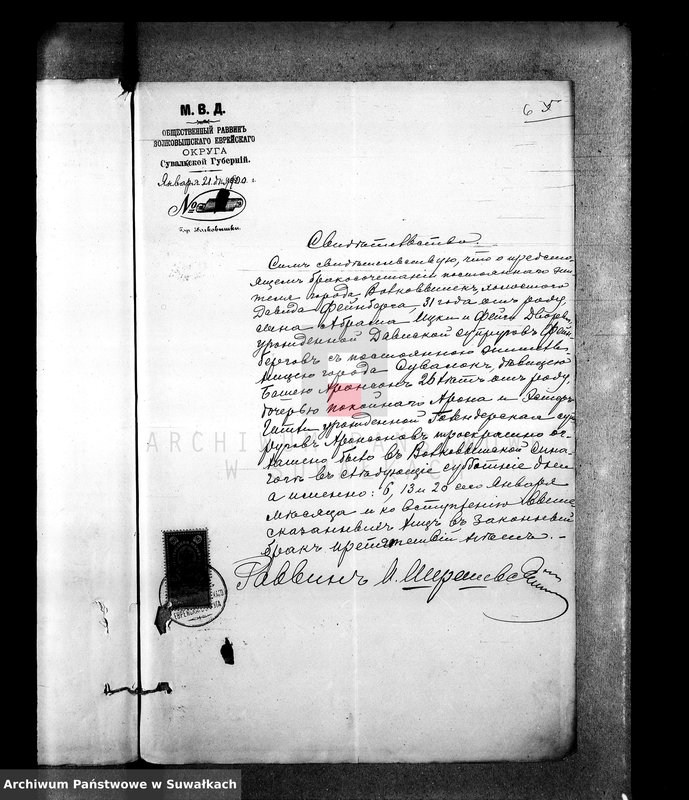 М. В. Д.
ОБЩЕСТВЕННЫЙ РАВВИНЪ
ВОЛКОВЫШСКАГО ЕВРЕЙСКАГО
ОКРУГА
Сувалкской Губерніи.
Января 21 дня 1900 г.
№
Гор. Волковышки.
6
Свидѣтельство.
Симъ свидѣтельствую, что о предсто-
ящемъ бракосочетаніи постояннаго жи-
теля города Волковышекъ, холостого
Давида Фейнберга, 31 года отъ роду,
сына Абрама Ицки и Фейги Двойры,
урожденной супруговъ Фейн-
берговъ съ постоянною жительни-
цею города Сувалокъ, дѣвицею
Башею Аронсонъ 26 лѣтъ отъ роду,
дочерью покойнаго Арона и Эстеръ
Гитли урожденной суп-
руговъ Аронсоновъ троекратно ог-
лашено было въ Волковышской Сина-
гогѣ въ слѣдующіе субботніе дни
а именно: 6, 13 и 20 сего Января
мѣсяца и ко вступленію
сказанныхъ лицъ въ законный
бракъ препятствій нѣтъ.
Раввинъ И.
ARCHIWUM
W SUWAŁKACH
Archiwum Państwowe w Suwałkach